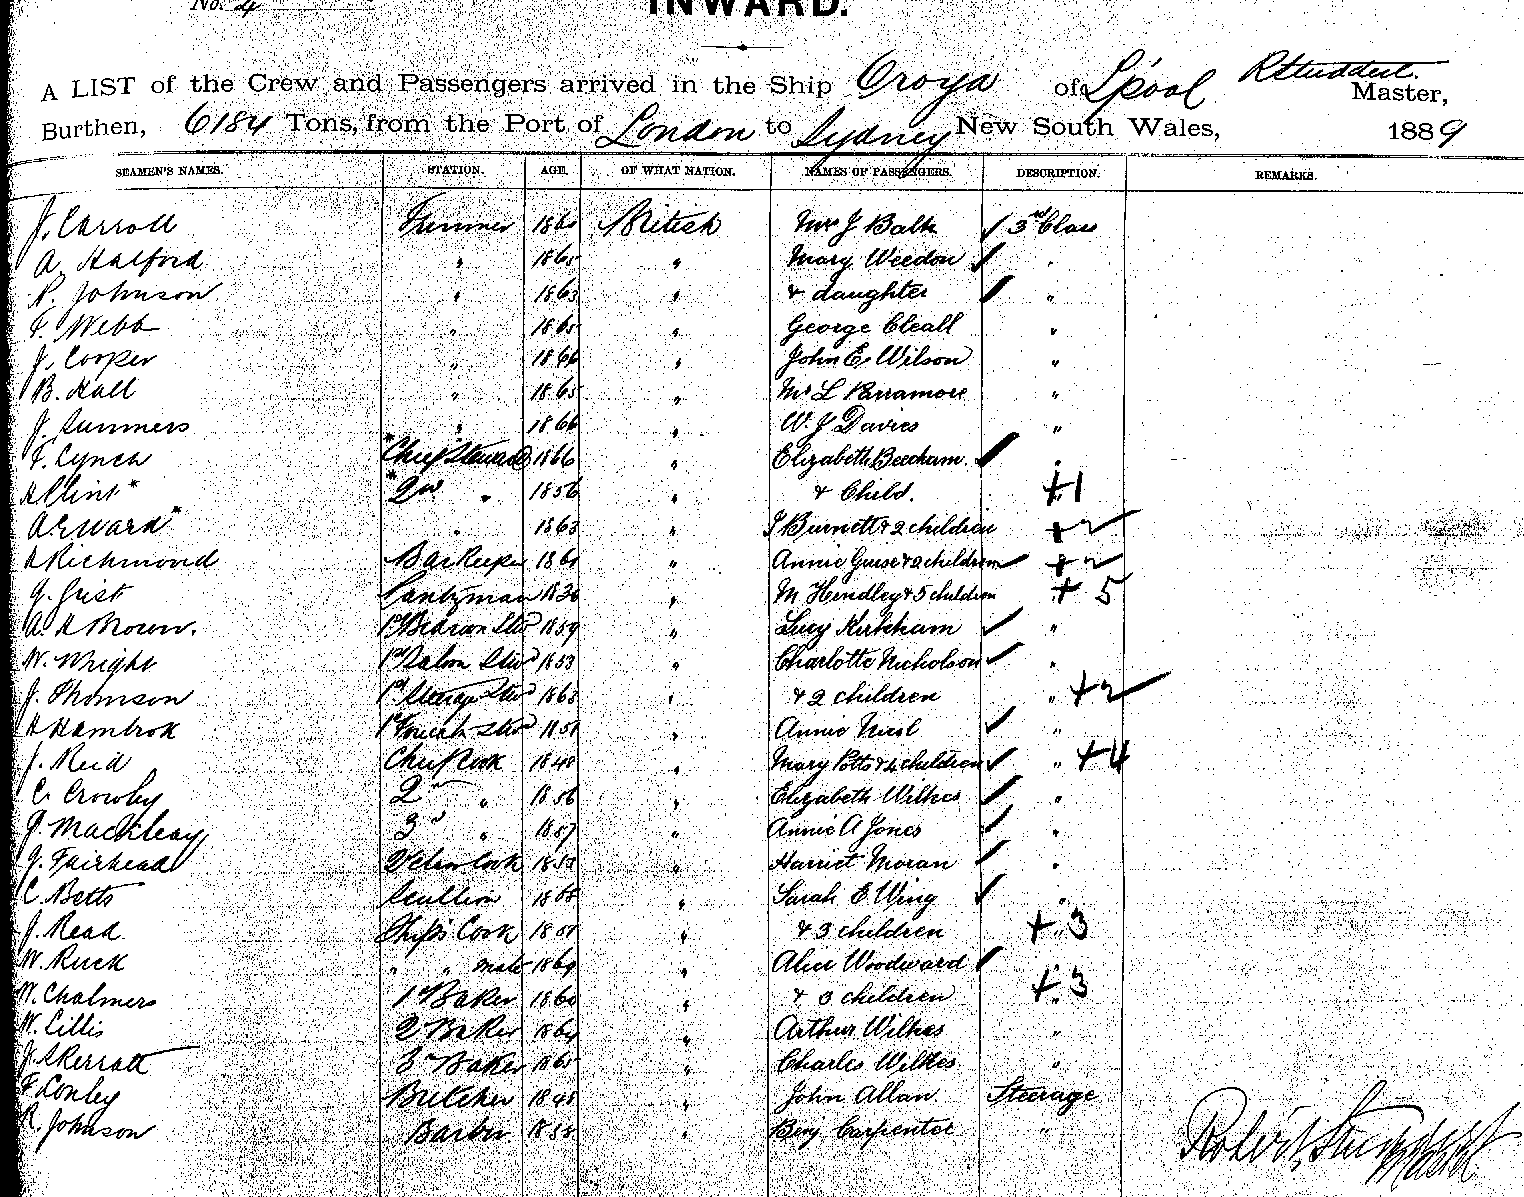 No. 4
INWARD.
A LIST of the Crew and Passengers arrived in the Ship Oroya of L'pool R Studdert Master,
Burthen, 6184 Tons, from the Port of London to Sydney New South Wales, 1889
SEAMEN'S NAMES. STATION. AGE. OF WHAT NATION. NAMES OF PASSENGERS. DESCRIPTION. REMARKS.
J. Carroll Trimmer 1860 British J Balk 3rd Class
A. Halford " 1865 " Mary Weedon "
P. Johnson " 1863 " & daughter "
F. Webb " 1865 " George Cleall "
J. Cooper " 1866 " John E. Wilson "
B. Hall " 1865 " L Parramore "
J. Summers " 1866 " W. J Davies "
F. Lynch Chief Steward 1866 " Elizabeth Beecham "
H Clint* 2nd " 1856 " & Child. +1
A. E Ward* " 1863 " J Burnett & 2 children +2
H Richmond Bar Keeper " Annie Guise & 2 children +2
G. Grist Pantryman 1836 " M Hendley & 5 children +5
A. H Brown. 1859 " Lucy Kirkham "
W. Wright 1st Saloon Stwd 1853 " Charlotte Nicholson "
J. Thomson 1st Steerage Stwd 1863 " & 2 children " +2
H Hambrok " Annie Nicol "
J. Reid Chief Cook 1848 " Mary Potts & 4 children " +4
C. Crowby 2" " 1856 " Elizabeth Wilkes "
J. Mackleay 3" " 1857 " Annie A Jones "
J. Fairhead 1853 " Harriet Moran "
C. Betts Scullion 1868 " Sarah E. Wing "
J. Read Ship's Cook " & 3 children +3
W. Ruck " " mate 1869 " Alice Woodward "
W. Chalmers 1st Baker 1860 " & 3 children +3
W. Lillis 2 Baker 1864 " Arthur Wilkes "
J. Skerratt 3" Baker 1865 " Charles Wilkes "
F Conley Butcher 1848 " John Allan Steerage
R. Johnson Barber 1858 " Benj Carpenter "
Robert Studdert
Master